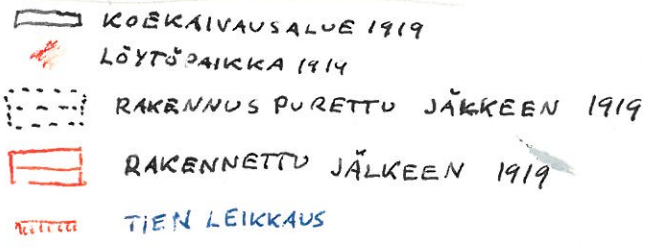 KOEKAIVAUSALUE 1919
LÖYTÖPAIKKA 1914
RAKENNUS PURETTU JÄKKEEN 1919
RAKENNETTU JÄLKEEN 1919
TIEN LEIKKAUS